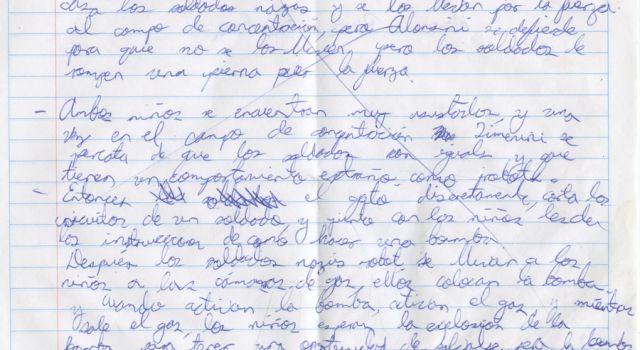 los soldados nazis y se los llevan por la fuerza
al campo de concentración, pero Alonsini se defiende
para que no se los lleven, pero los soldados le
rompen una pierna por la fuerza.
- Ambos niños se encuentran muy asustados y una
vez en el campo de concentración Zimenini se
percata de que los soldados son iguales y que
tienen un comportamiento extraño como robots.
- Entonces el gato discretamente corta los
circuitos de un soldado y junto con los niños les da
las instrucciones de como hacer una bomba.
Despues los soldados nazis robot se llevan a los
niños a las cámaras de gas, ellos colocan la bomba
y cuando activan la bomba, activan el gas y mientras
sale el gas, los niños esperan la explosion de la
bomba para tener una oportunidad de pero la bomba